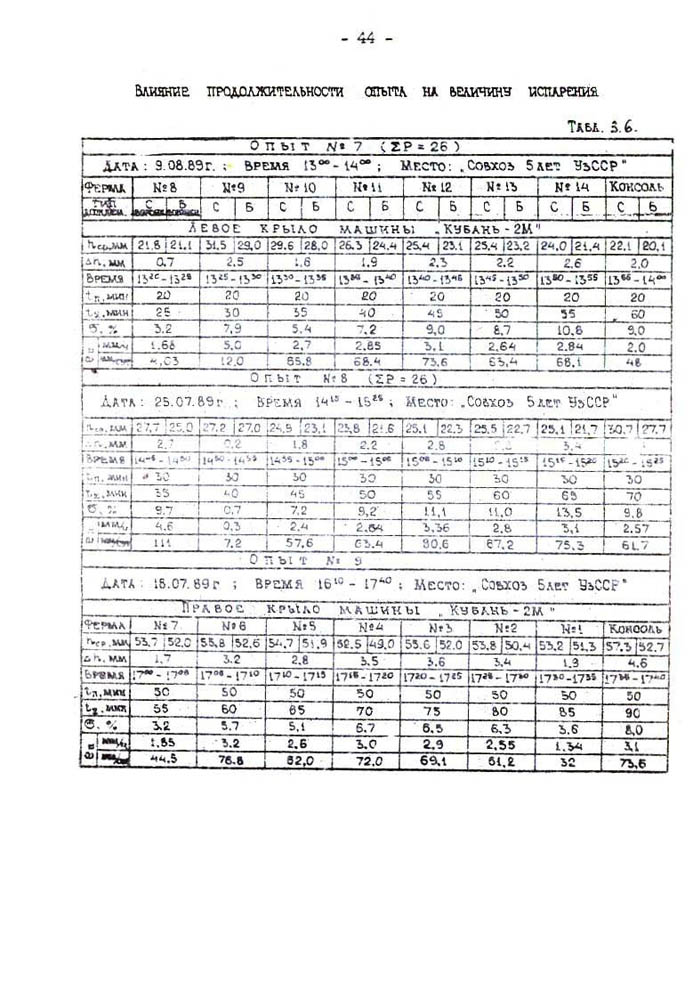 - 44 -
Влияние продолжительности опыта на величину испарения
Табл. 3.6.
Опыт №7 (ΣP=26)
Дата: 9.08.89г.; Время 13⁰⁰-14⁰⁰; Место: „Совхоз 5 лет УзССР"
Ферма №8 №9 №10 №11 №12 №13 №14 Консоль
Тип С Б С Б С Б С Б С Б С Б С Б С Б
Левое крыло машины „Кубань-2М"
hср.мм 21.8 21.1 31,5 29,0 29.6 28,0 26.3 24.4 25.4 23.1 25.4 23.2 24.0 21.4 22.1 20.1
Δh.мм 0.7 2.5 1.6 1.9 2.3 2.2 2.6 2.0
Время 13²⁰-13²⁵ 13²⁵-13³⁰ 13³⁰-13³⁵ 13³⁵-13⁴⁰ 13⁴⁰-13⁴⁵ 13⁴⁵-13⁵⁰ 13⁵⁰-13⁵⁵ 13⁵⁵-14⁰⁰
tп.мин 20 20 20 20 20 20 20 20
мин 25 30 35 40 45 50 55 60
σ. % 3.2 7,9 5.4 7.2 9,0 8,7 10,8 9,0
1.68 5,0 2,7 2,85 3,1 2,64 2,84 2,0
4,03 12,0 65,8 68,4 73,6 63,4 68,1 48
Опыт №8 (ΣP=26)
Дата: 25.07.89г.; Время 14¹⁵-15²⁵; Место: „Совхоз 5 лет УзССР"
hср.мм 27,7 25,0 27,2 27,0 24,9 23,1 23,8 21,6 25,1 22,3 25,5 22,7 25,1 21,7 30,7 27,7
Δh.мм 2,7 0,2 1,8 2,2 2,8 3,4
Время 14⁴⁵-14⁵⁰ 14⁵⁰-14⁵⁵ 14⁵⁵-15⁰⁰ 15⁰⁰-15⁰⁵ 15⁰⁵-15¹⁰ 15¹⁰-15¹⁵ 15¹⁵-15²⁰ 15²⁰-15²⁵
tп.мин 30 30 30 30 30 30 30 30
мин 35 40 45 50 55 60 65 70
σ. % 9,7 0,7 7,2 9,2 11,1 11,0 13,5 9,8
4,6 0,3 2,4 2,64 3,36 2,8 3,1 2,57
111 7.2 57,6 63.4 80,6 67,2 75,3 61,7
Опыт №9
Дата: 18.07.89г; Время 16¹⁰-17⁴⁰; Место: „Совхоз 5 лет УзССР"
Правое крыло машины „Кубань-2М"
Ферма №7 №6 №5 №4 №3 №2 №1 Консоль
hср.мм 53,7 52,0 55,8 52,6 54,7 51,9 52,5 49,0 55,6 52,0 53,8 50,4 53,2 51,3 57,3 52,7
Δh.мм 1,7 3.2 2,8 3,5 3,6 3,4 1,9 4,6
Время 17⁰⁰-17⁰⁵ 17⁰⁵-17¹⁰ 17¹⁰-17¹⁵ 17¹⁵-1720 1720-1725 1725-1730 1730-1735 17³⁵-17⁴⁰
tп.мин 50 50 50 50 50 50 50 50
мин 55 60 65 70 75 80 85 90
σ. % 3.2 5,7 5,1 6,7 6,5 6,3 3,6 8,0
1,85 3.2 2,6 3,0 2,9 2,55 1,34 3,1
44,5 76.8 62,0 72,0 69,1 61,2 32 73,6